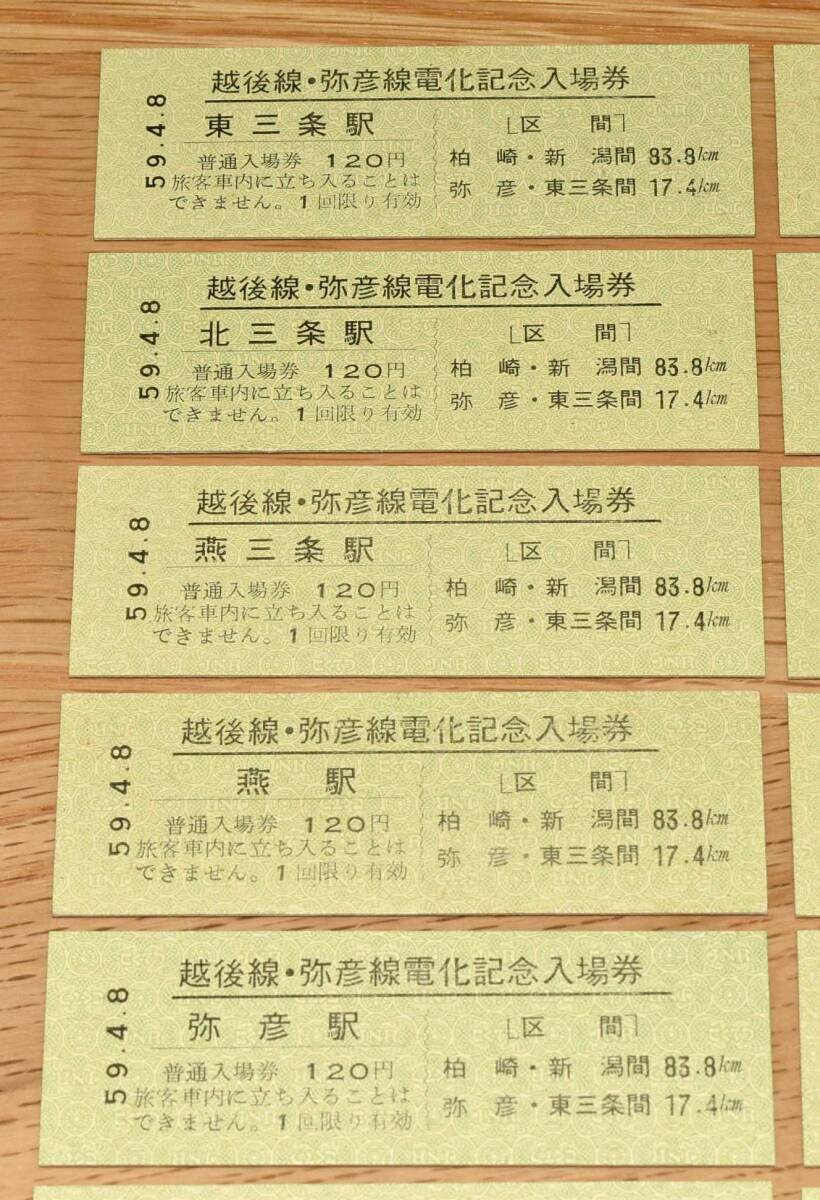 越後線・弥彦線電化記念入場券
東三条駅
普通入場券 120円
旅客車内に立ち入ることは
できません。1回限り有効
59.4.8
区間
柏崎・新潟間 83.8km
弥彦・東三条間 17.4km
越後線・弥彦線電化記念入場券
北三条駅
普通入場券 120円
旅客車内に立ち入ることは
できません。1回限り有効
59.4.8
区間
柏崎・新潟間 83.8km
弥彦・東三条間 17.4km
越後線・弥彦線電化記念入場券
燕三条駅
普通入場券 120円
旅客車内に立ち入ることは
できません。1回限り有効
59.4.8
区間
柏崎・新潟間 83.8km
弥彦・東三条間 17.4km
越後線・弥彦線電化記念入場券
燕駅
普通入場券 120円
旅客車内に立ち入ることは
できません。1回限り有効
59.4.8
区間
柏崎・新潟間 83.8km
弥彦・東三条間 17.4km
越後線・弥彦線電化記念入場券
弥彦駅
普通入場券 120円
旅客車内に立ち入ることは
できません。1回限り有効
59.4.8
区間
柏崎・新潟間 83.8km
弥彦・東三条間 17.4km